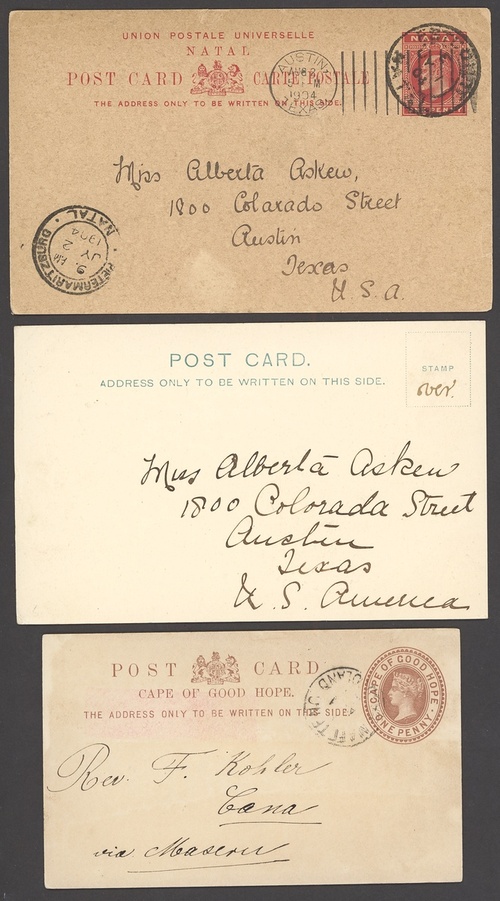 UNION POSTALE UNIVERSELLE
NATAL
POST CARD CARTE POSTALE
THE ADDRESS ONLY TO BE WRITTEN ON THIS SIDE.
AUSTIN
1904
TEXAS
NATAL
Miss Alberta Askew,
1800 Colarado Street
Austin
Texas
U.S.A.
PIETERMARITZBURG · NATAL ·
9. AM
JY 2
1904
POST CARD.
ADDRESS ONLY TO BE WRITTEN ON THIS SIDE.
STAMP
over.
Miss Alberta Askew
1800 Colorada Street
Austin
Texas
U.S. America
POST CARD
CAPE OF GOOD HOPE.
THE ADDRESS ONLY TO BE WRITTEN ON THIS SIDE.
CAPE OF GOOD HOPE
ONE PENNY
Rev. F. Kohler
Cana
via Maseru